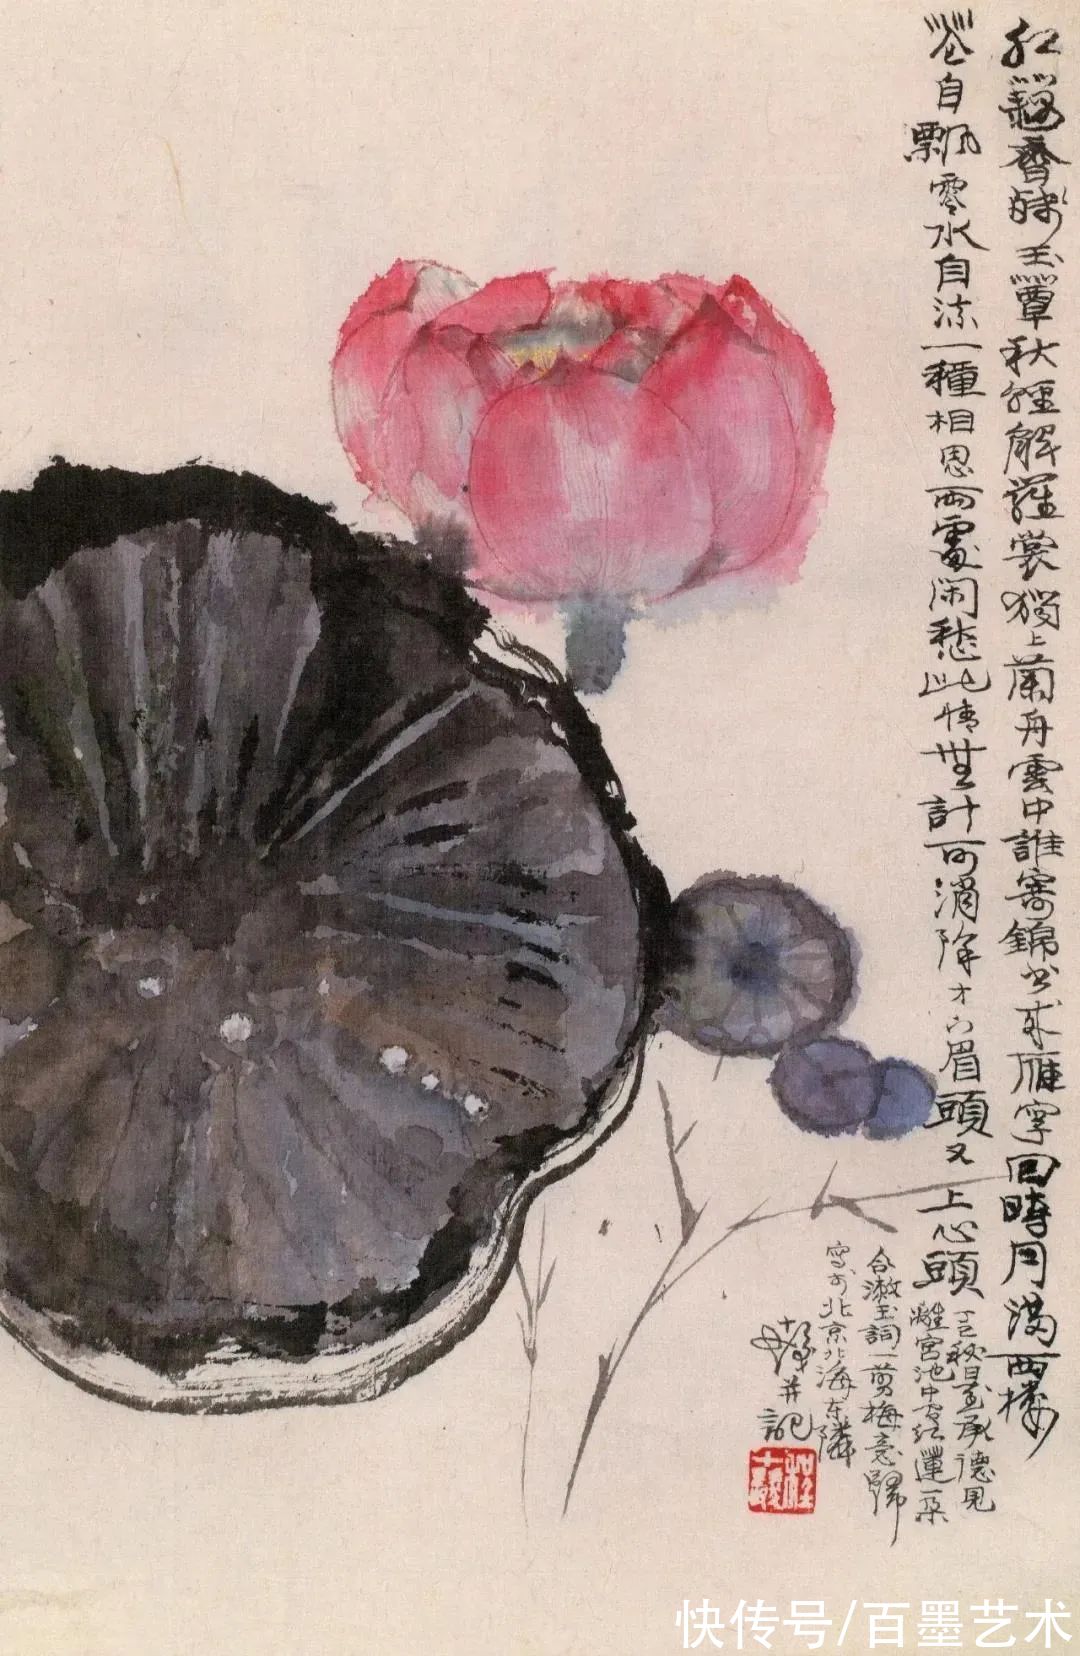 红藕香残玉簟秋輕解羅裳獨上蘭舟雲中誰寄錦书來雁字回時月满西楼
花自飄零水自流一種相思兩處闲愁此情無計可消除才下眉頭又上心頭
丁巳秋日至承德見
離宮池中有红蓮一朵
合漱玉詞一剪梅意歸
寫於北京北海东隣
十髮并記
程十髮
快传号/百墨艺术